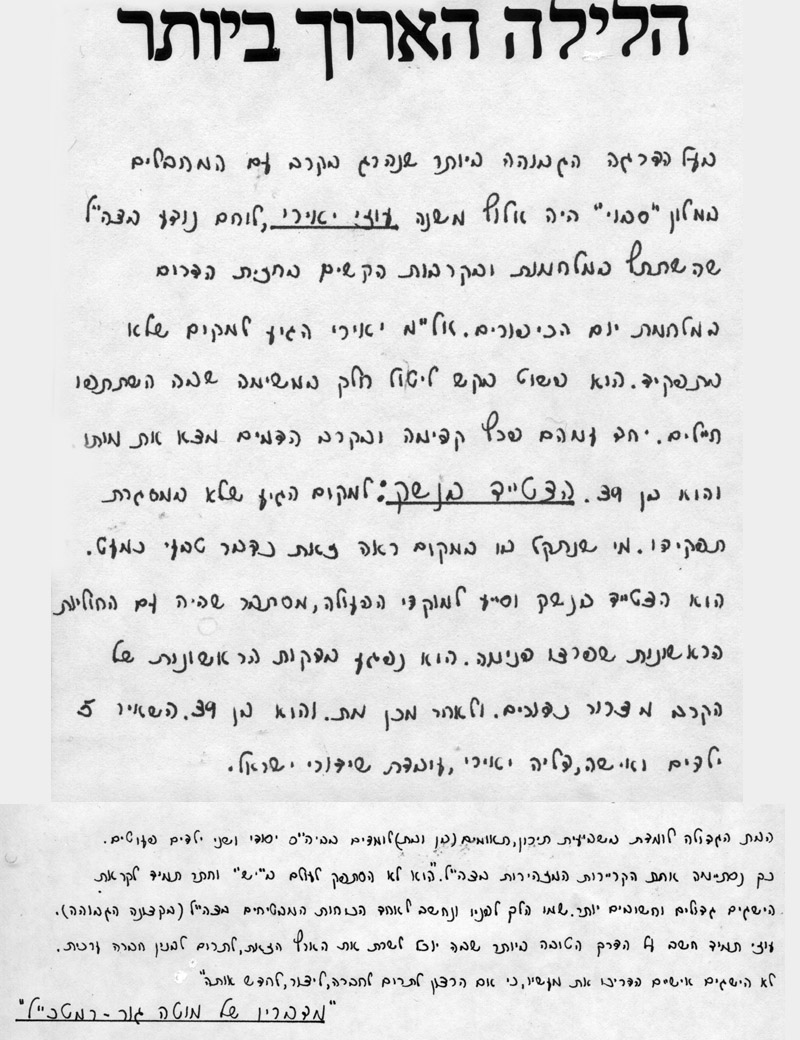 הלילה הארוך ביותר
בעל הדרגה הגבוהה ביותר שנהרג בקרב עם המחבלים
במלון "סבוי" היה אלוף משנה עוזי יאירי, לוחם נודע בצה"ל
שהשתתף במלחמות ובקרבות הקשים בחזית הדרום
במלחמת יום הכיפורים. אל"מ יאירי הגיע למקום שלא
בתפקיד. הוא פשוט בקש ליטול חלק במשימה שבה השתתפו
חיילים. יחד עמהם פרץ קדימה ובקרב הדמים מצא את מותו
והוא בן 39. הצטייד בנשק: למקום הגיע שלא במסגרת
תפקידו. מי שנתקל בו במקום ראה זאת כדבר טבעי כמעט.
הוא הצטייד בנשק וסייע למוקדי הפעולה, מסתבר שהיה עם החוליות
הראשונות שפרצו פנימה. הוא נפגע בדקות הראשונות של
הקרב מצרור כדורים. ולאחר מכן מת. והוא בן 39. השאיר 5
ילדים ואישה, דליה יאירי, עובדת שידורי ישראל.
הבת הגדולה לומדת בשביעית תיכון, תאומים (בן ובת) לומדים בביה"ס יסודי ושני ילדים פעוטים.
כך נסתיימה אחת הקריירות המזהירות בצה"ל. "הוא לא הסתפק לעולם ב"יש" וחתר תמיד לקראת
הישגים גדולים וחשובים יותר. שמו הלך לפניו ונחשב לאחד הכוחות המבטיחים בצה"ל (בקצונה הגבוהה).
עוזי תמיד חשב על הדרך הטובה ביותר שבה יוכל לשרת את הארץ הזאת, לתרום לבנין חברה ערכית.
לא הישגים אישיים הדריכו את מעשיו, כי אם הרצון לתרום לחברה, ליצור, לחדש אותה"
"מדבריו של מוטה גור - רמטכ"ל"